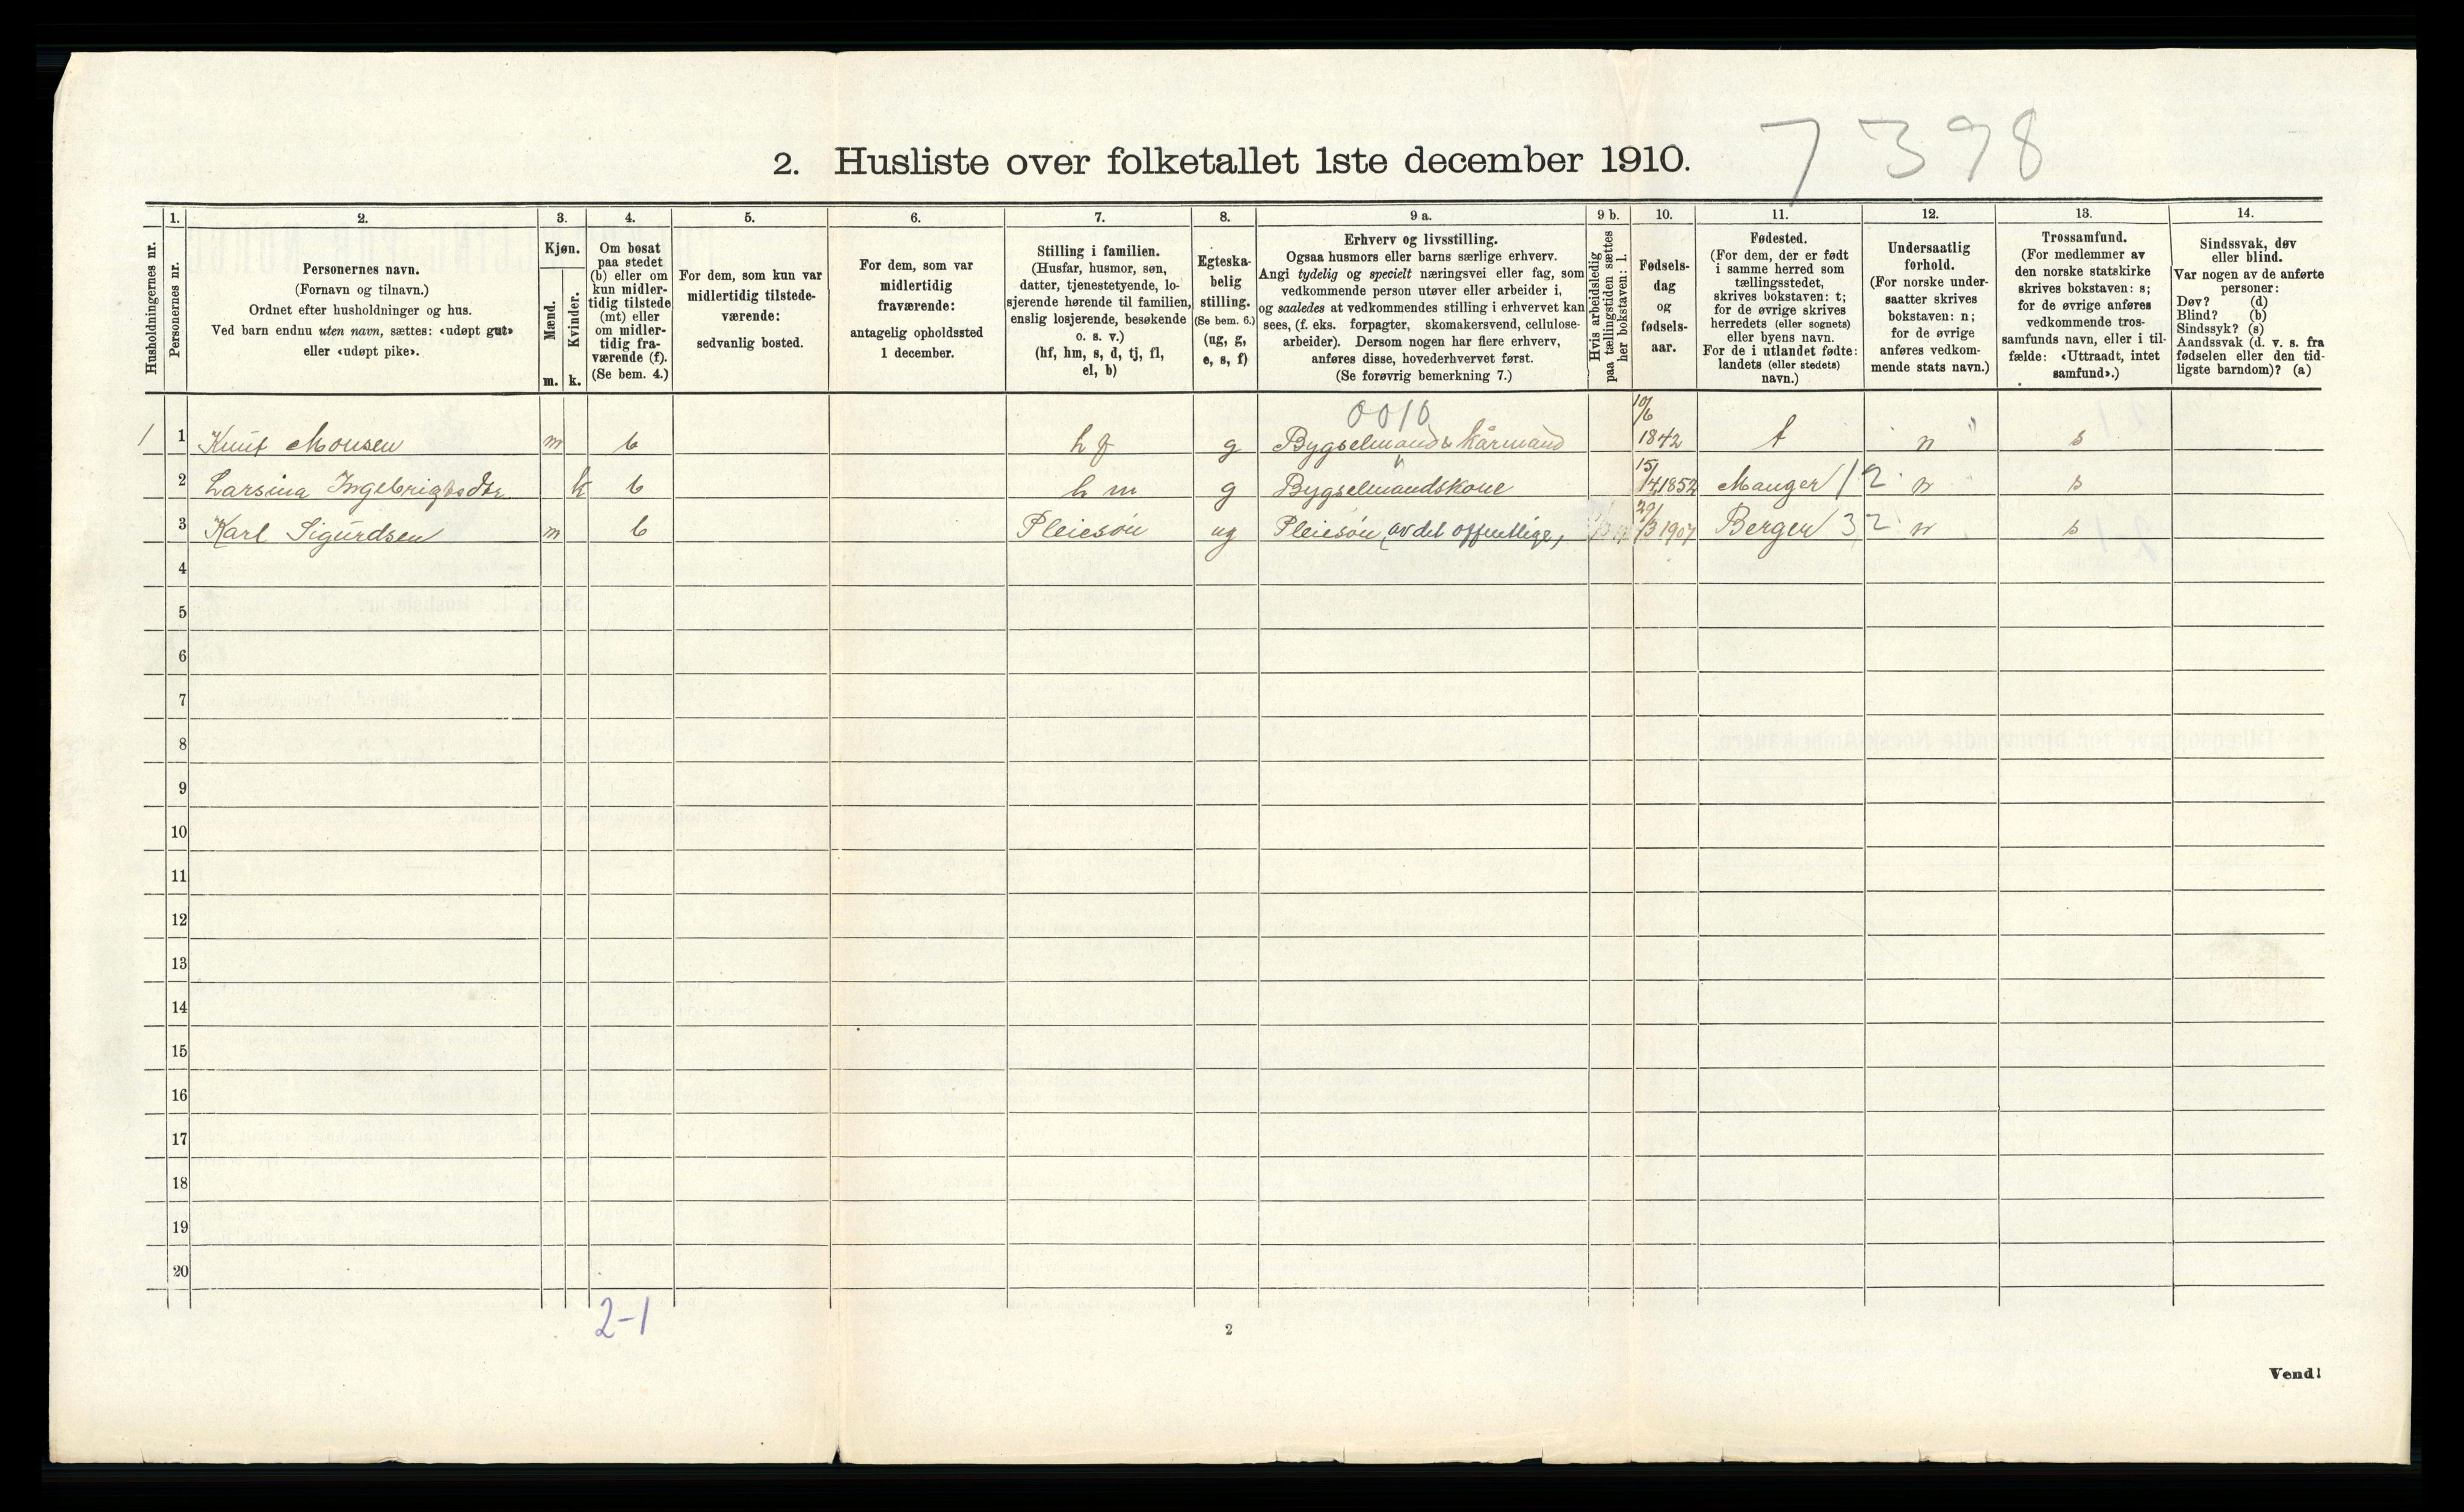 7398
2. Husliste over folketallet 1ste december 1910.
Husholdningernes nr.
1.
Personernes nr.
2.
Personernes navn.
(Fornavn og tilnavn.)
Ordnet efter husholdninger og hus.
Ved barn endnu uten navn, sættes: «udøpt gut»
eller «udøpt pike».
3.
Kjøn.
Mænd.
Kvinder.
m. k.
4.
Om bosat
paa stedet
(b) eller om
kun midler-
tidig tilstede
(mt) eller
om midler-
tidig fra-
værende (f).
(Se bem. 4.)
5.
For dem, som kun var
midlertidig tilstede-
værende:
sedvanlig bosted.
6.
For dem, som var
midlertidig
fraværende:
antagelig opholdssted
1 december.
7.
Stilling i familien.
(Husfar, husmor, søn,
datter, tjenestetyende, lo-
sjerende hørende til familien,
enslig losjerende, besøkende
o. s. v.)
(hf, hm, s, d, tj, fl,
el, b)
8.
Egteska-
belig
stilling.
(Se bem. 6.)
(ug, g,
e, s, f)
9 a.
Erhverv og livsstilling.
Ogsaa husmors eller barns særlige erhverv.
Angi tydelig og specielt næringsvei eller fag, som
vedkommende person utøver eller arbeider i,
og saaledes at vedkommendes stilling i erhvervet kan
sees, (f. eks. forpagter, skomakersvend, cellulose-
arbeider). Dersom nogen har flere erhverv,
anføres disse, hovederhvervet først.
(Se forøvrig bemerkning 7.)
9 b.
Hvis arbeidsledig
paa tællingstiden sættes
her bokstaven: l.
10.
Fødsels-
dag
og
fødsels-
aar.
11.
Fødested.
(For dem, der er født
i samme herred som
tællingsstedet,
skrives bokstaven: t;
for de øvrige skrives
herredets (eller sognets)
eller byens navn.
For de i utlandet fødte:
landets (eller stedets)
navn.)
12.
Undersaatlig
forhold.
(For norske under-
saatter skrives
bokstaven: n;
for de øvrige
anføres vedkom-
mende stats navn.)
13.
Trossamfund.
(For medlemmer av
den norske statskirke
skrives bokstaven: s;
for de øvrige anføres
vedkommende tros-
samfunds navn, eller i til-
fælde: «Uttraadt, intet
samfund».)
14.
Sindssvak, døv
eller blind.
Var nogen av de anførte
personer:
Døv? (d)
Blind? (b)
Sindssyk? (s)
Aandssvak (d. v. s. fra
fødselen eller den tid-
ligste barndom)? (a)
0010
1 1 Knut Monsen m b hf g Bygselmand & kårmand 10/6 1842 t n s
2 Larsina Ingebrigtsdtr k b hm g Bygselmandskone 15/4 1852 Manger 12 n s
3 Karl Sigurdsen m b Pleiesøn ug Pleiesøn (av det offentlige) 29/3 1907 Bergen 32 n s
4
5
6
7
8
9
10
11
12
13
14
15
16
17
18
19
20
2-1
2
Vend!